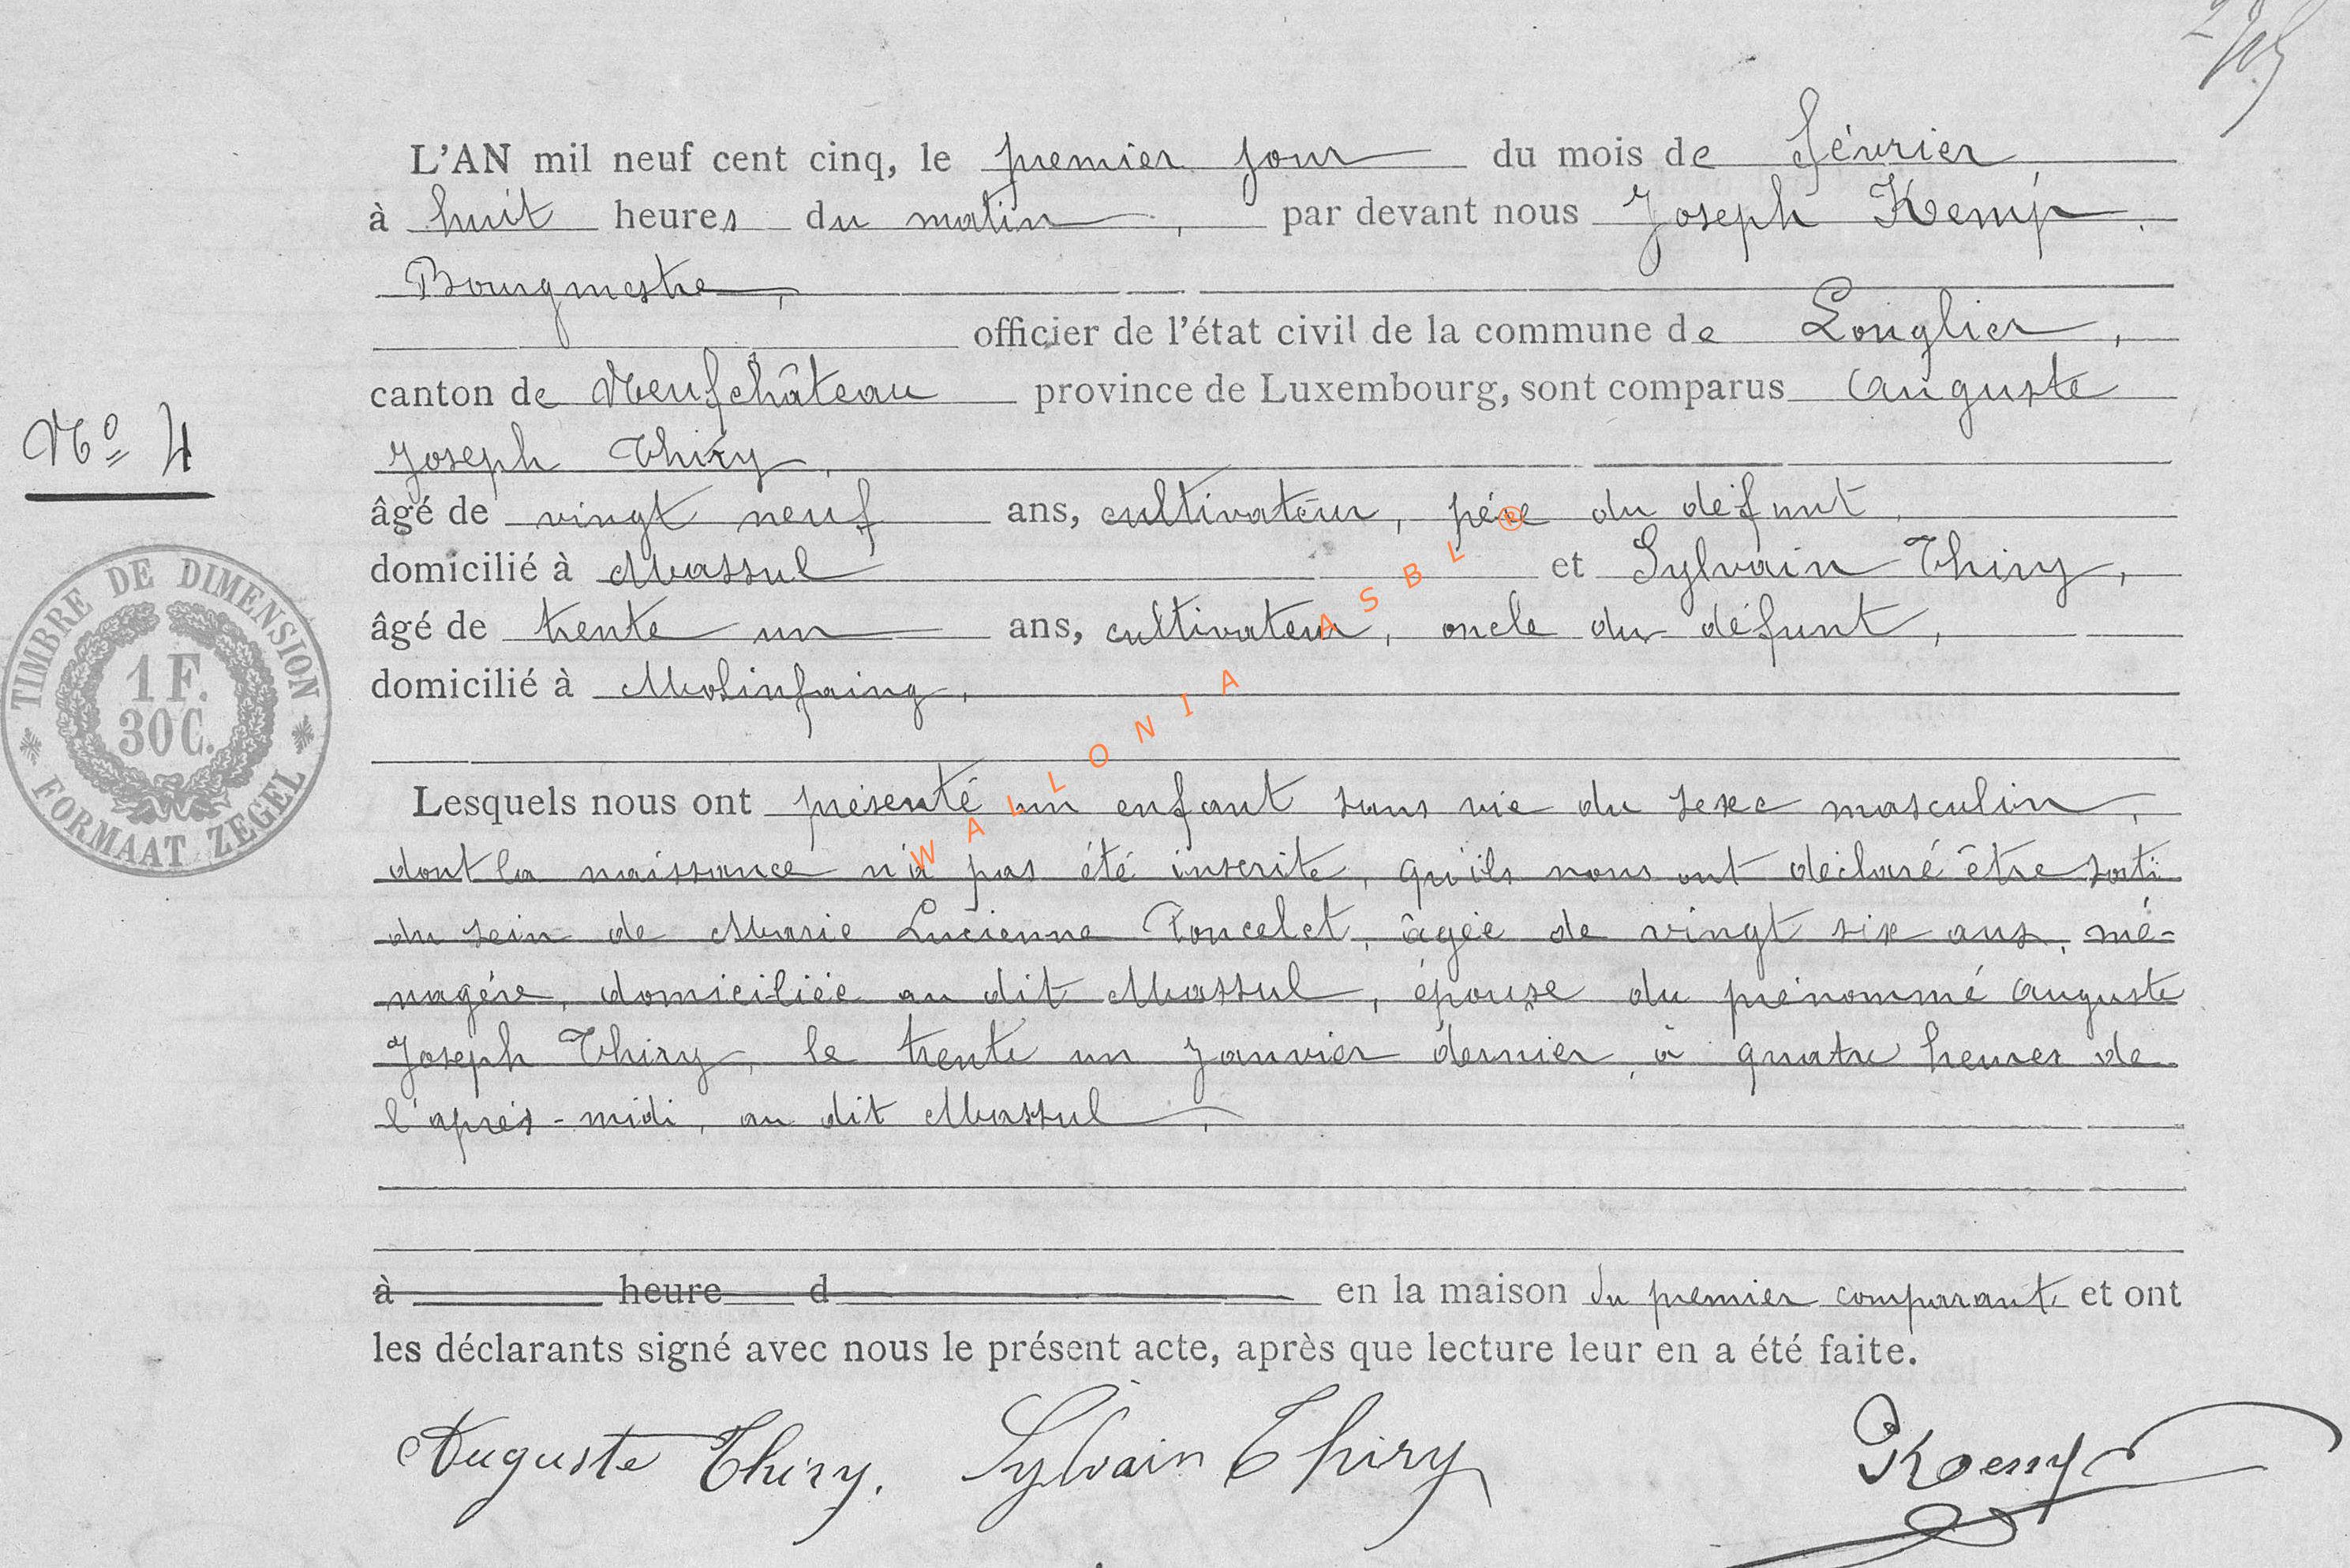 L'AN mil neuf cent cinq, le premier jour du mois de février,
à huit heures du matin, par devant nous Joseph Kemp,
Bourgmestre,
officier de l'état civil de la commune de Longlier,
canton de Neufchâteau province de Luxembourg, sont comparus Auguste
Nº 4
Joseph Thiry,
âgé de vingt neuf ans, cultivateur, père du défunt,
domicilié à Massul et Sylvain Thiry,
âgé de trente un ans, cultivateur, oncle du défunt,
domicilié à Molinfaing,
TIMBRE DE DIMENSION
1 F.
30 C.
FORMAAT ZEGEL
WALLONIA ASBL ®
Lesquels nous ont présenté un enfant sans vie du sexe masculin,
dont la naissance n'a pas été inscrite, qu'ils nous ont déclaré être sorti
du sein de Marie Lucienne Poncelet, âgée de vingt six ans, mé-
nagère, domiciliée au dit Massul, épouse du prénommé Auguste
Joseph Thiry, le trente un janvier dernier, à quatre heures de
l'après-midi, au dit Massul,
à heure d en la maison du premier comparant, et ont
les déclarants signé avec nous le présent acte, après que lecture leur en a été faite.
Auguste Thiry. Sylvain Thiry JKemp